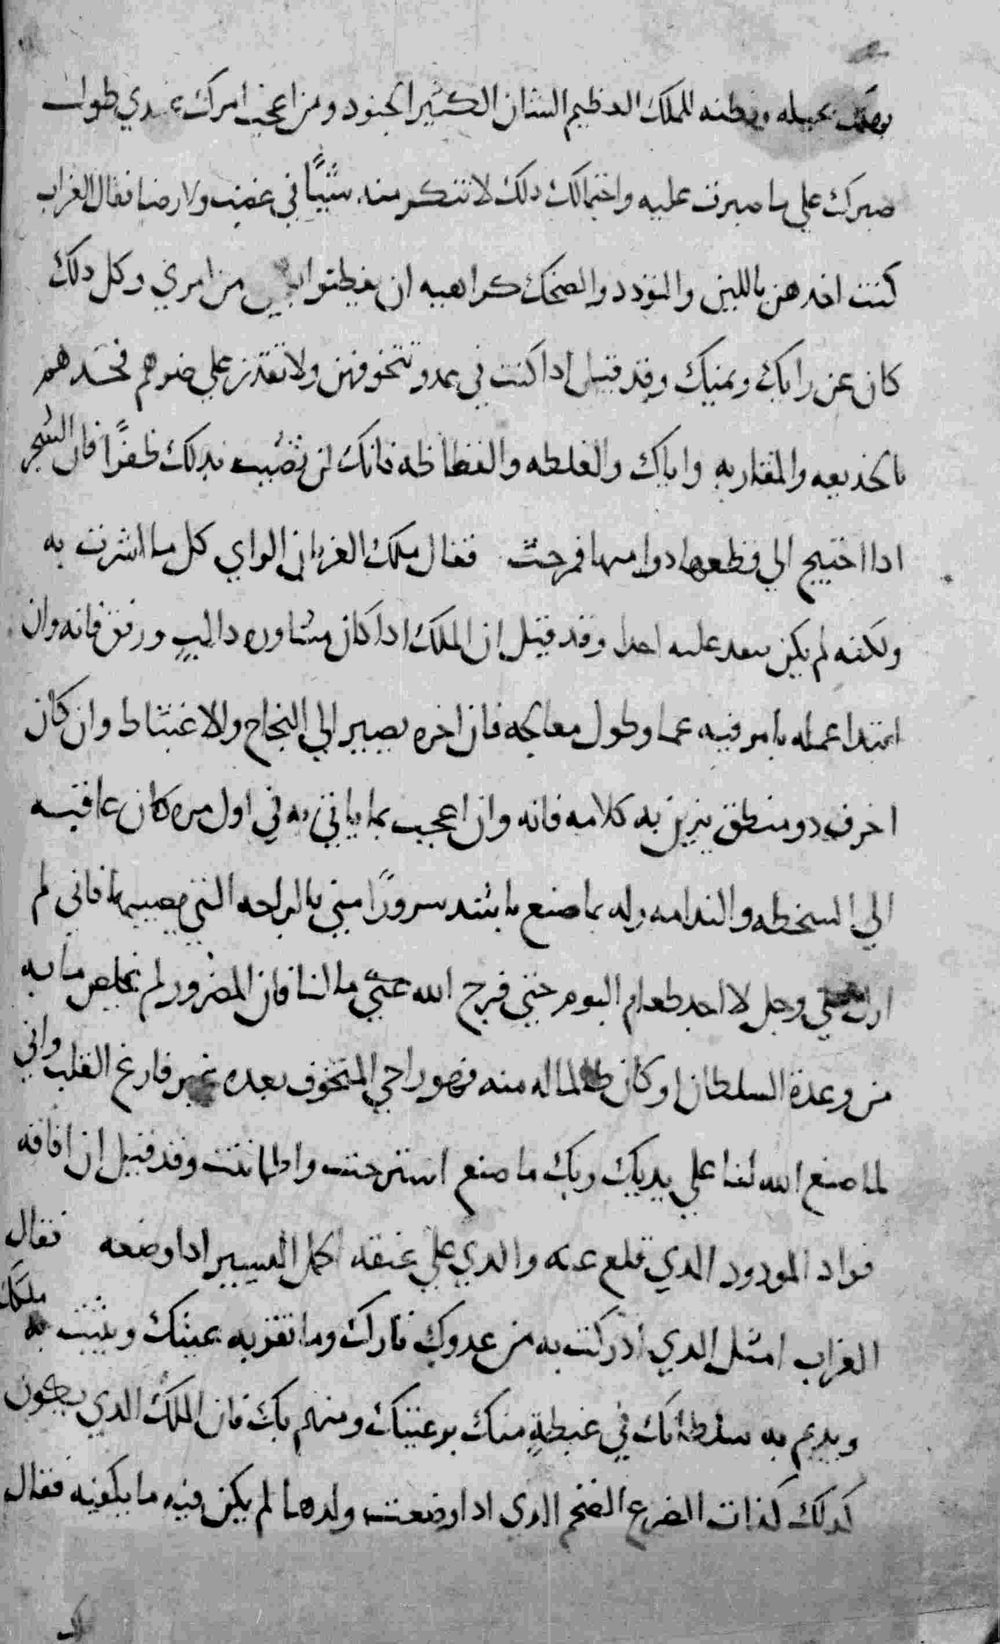 يهلك بحيله وفطنه للملك العظيم الشان الكثير الجنود ومن اعجب امرك عندي طول
صبرك علي ما صبرت عليه واحتمالك دلك لا تنكر منه شيًا في غضب ولا رضا فقال الغراب
كنت اخدهن باللين والتودد والضحك كراهيه ان يفطنوا من امري وكل دلك
كان عن رايك ويمنيك وقد قيل ادا كنت في عدو تتخوفهن ولا تقدر علي ضرهم فخدهم
بالخديعه والمقاربه واياك والغلطه والفظاظه فانك لن تصيب بدلك ظفرًا فان الشجر
ادا احتيج الي قطعها فقال ملك الغربان الراي كل ما اشرت به
ولكنه لم يكن احدا وقد قيل ان الملك ادا كان مشاوره دا لب ورفق فانه وان
ابتدا عمله بامر فيه عما وطول معالجه فان اخره يصير الي النجاح والاغتباط وان كان
اخرق دو منطق يزين به كلامه فانه وان اعجب بما ياتي به في اول مره كان عاقبته
الي السخطه والندامه وله بما صنع باشد سرورًا مني بالراحه التي فاني لم
ازل علي وجل لا اجد طعام اليوم حتي فرج الله عني ما لنا فان المضرور لم يخلص ما به
من وعدة السلطان او كان ظالما له منه فهو راجي المتخوف بعده غير فارغ القلب واني
لما صنع الله لنا علي يديك وبك ما صنع استرحت واطماننت وقد قيل ان افاقه
فواد المورود الدي قلع عنه والدي علي عنقه الحمل اليسير ادا وضعه فقال
ملك الغراب امثل الدي ادركت به من عدوك تارك وما تقر به عينك ويثبت به
ويديم به سلطانك في غبطةٍ منك برعيتك ومنهم بك فان الملك الدي يكون
كدلك كذات الضرع الضخم الدي ادا رضعت ولدها لم يكن فيه ما يكفيه فقال